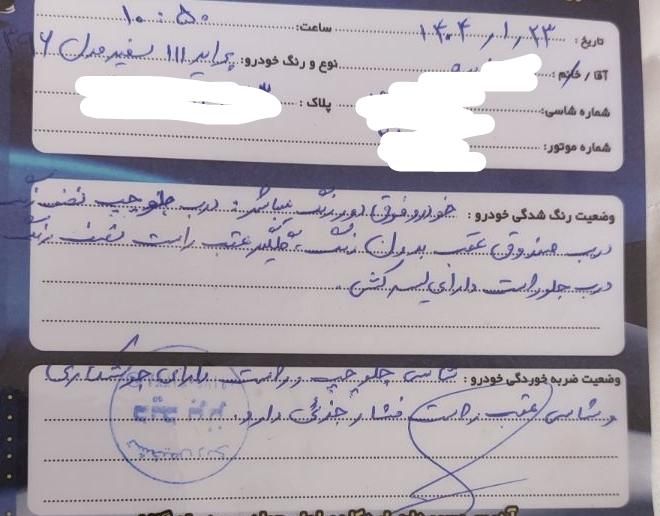 تاریخ: ۱۴۰۴/۱/۲۳ ساعت: ۱۰:۵۰
آقا / خانم: نوع و رنگ خودرو: پراید ۱۱۱ سفید مدل ۹۶
شماره شاسی: پلاک:
شماره موتور:
وضعیت رنگ شدگی خودرو: خودرو فوق دور رنگ میباشد: درب جلو چپ نصف رنگ
درب صندوق عقب بدون رنگ، گلگیر عقب راست نصف رنگ
درب جلو راست دارای لیسه کشی
وضعیت ضربه خوردگی خودرو: شاسی جلو چپ و راست دارای جوشکاری
و شاسی عقب راست فشار جزئی دارد.